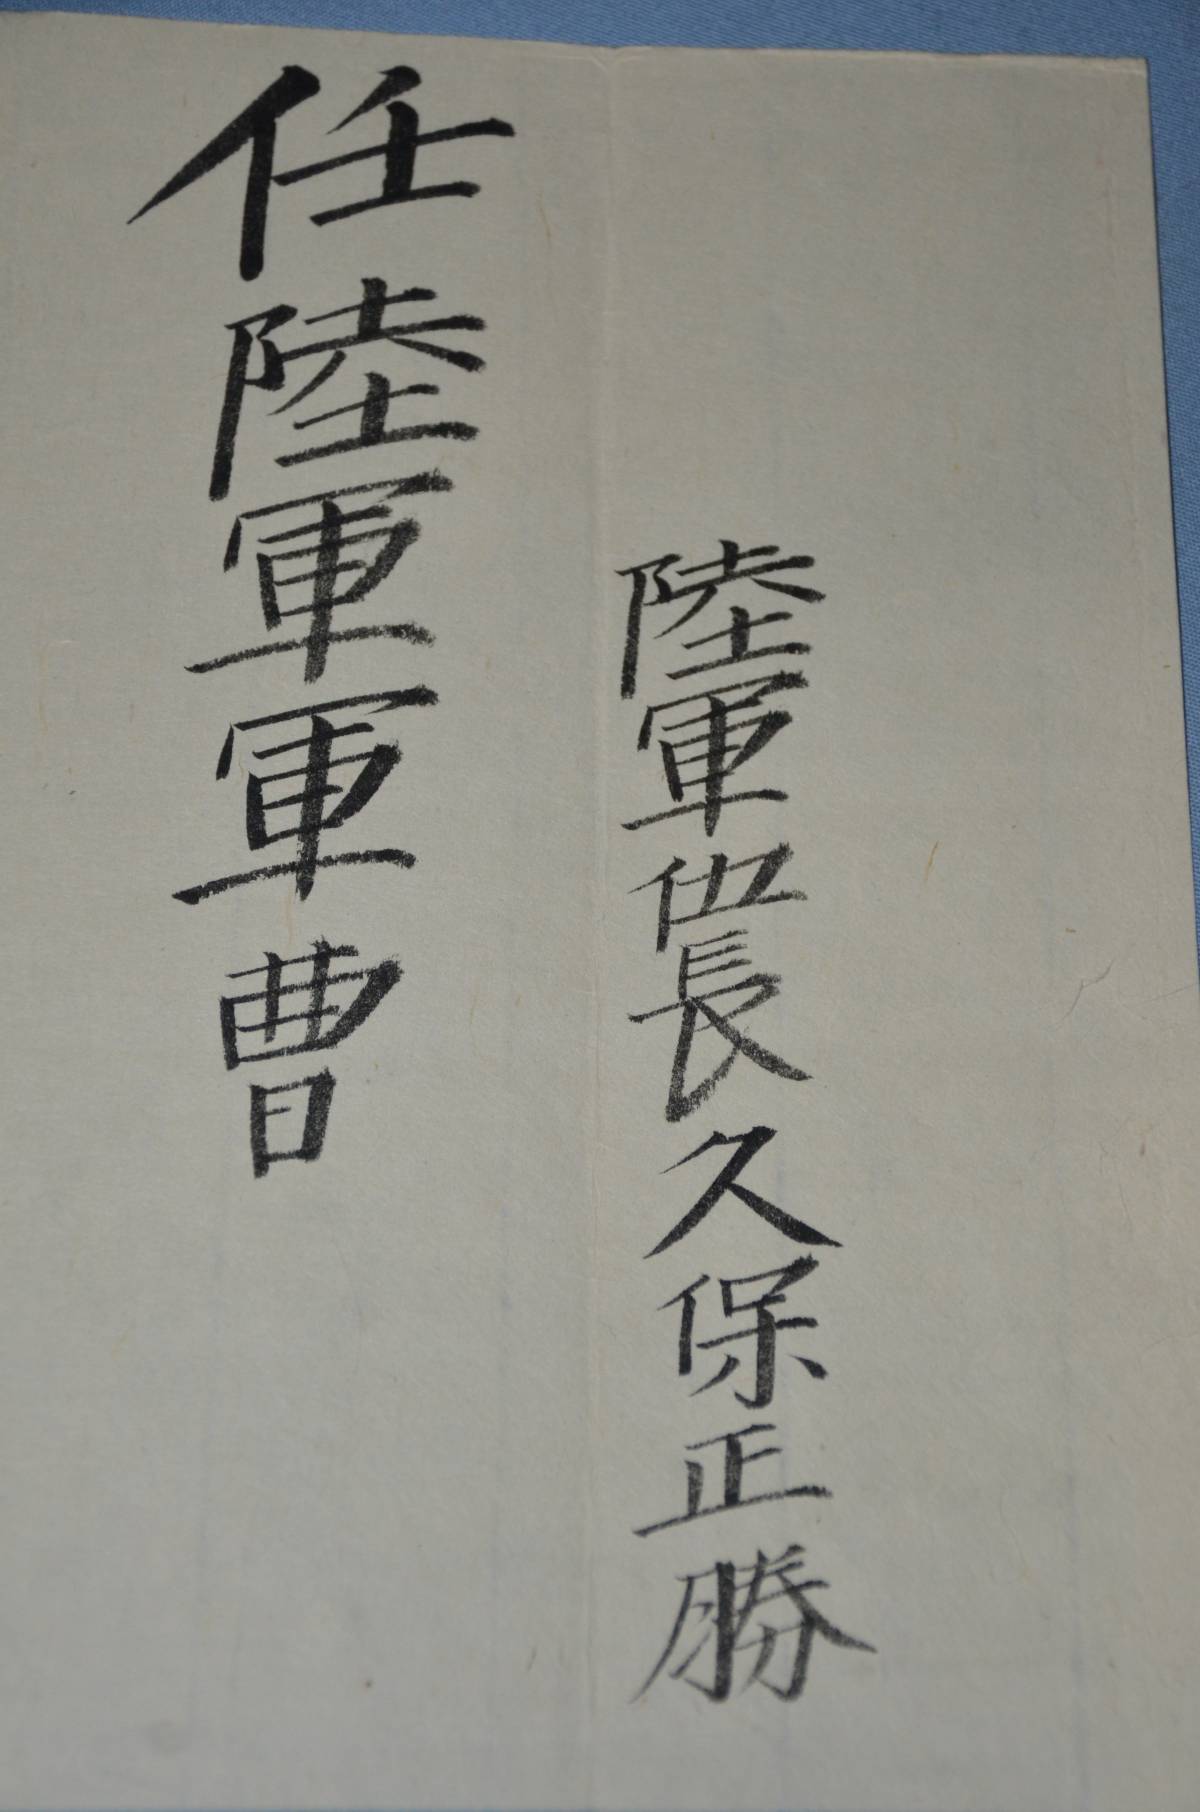 陸軍伍長久保正勝
任陸軍軍曹